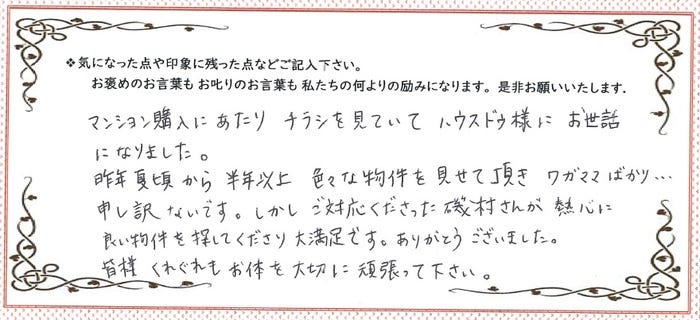 ❖気になった点や印象に残った点などご記入下さい。
お褒めのお言葉も お叱りのお言葉も 私たちの何よりの励みになります。是非お願いいたします.
マンション購入にあたり チラシを見ていて ハウスドゥ様に お世話
になりました。
昨年夏頃から 半年以上 色々な物件を見せて頂き ワガママばかり…
申し訳ないです。しかし ご対応くださった 磯村さんが 熱心に
良い物件を探してくださり 大満足です。ありがとうございました。
皆様 くれぐれも お体を大切に 頑張って下さい。